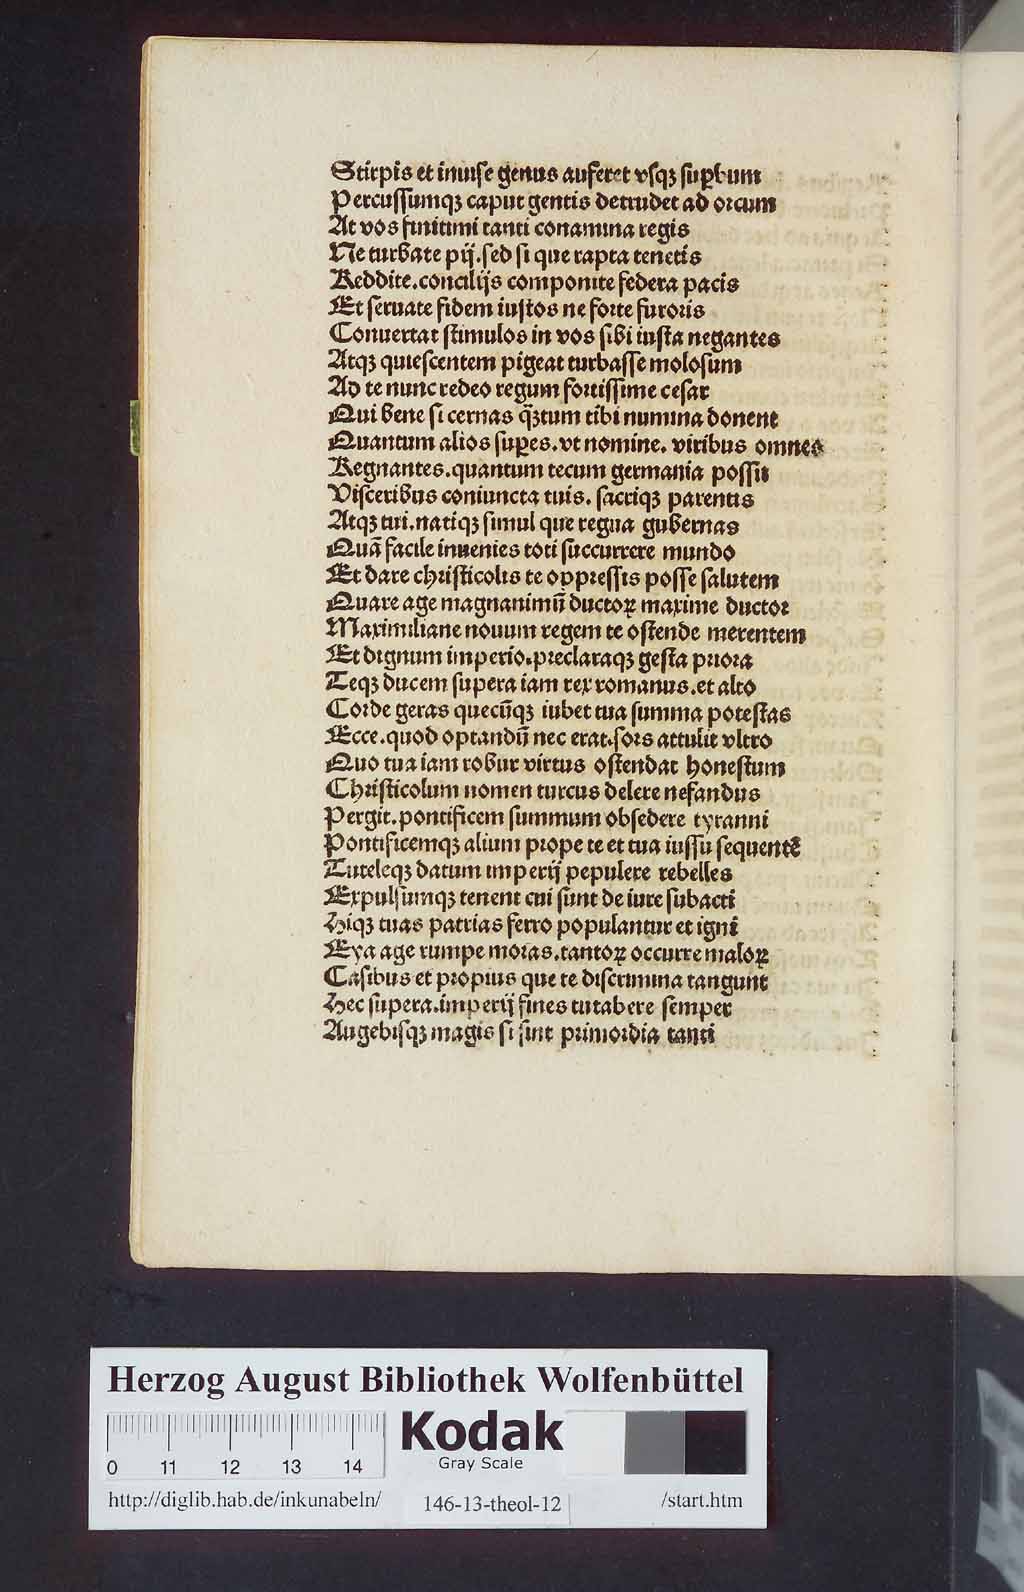 Stirpis et inuise genus auferet vsqꝫ suꝑbum
Percussumqꝫ caput gentis detrudet ad orcum
At vos finitimi tanti conamina regis
Ne turbate pij.sed si que rapta tenetis
Reddite.concilijs componite federa pacis
Et seruate fidem iustos ne forte furoris
Conuertat stimulos in vos sibi iusta negantes
Atqꝫ quiescentem pigeat turbasse molosum
Ad te nunc redeo regum fortissime cesar
Qui bene si cernas q̃ꝫtum tibi numina donent
Quantum alios suꝑes.vt nomine. viribus omnes
Regnantes.quantum tecum germania possit
Visceribus coniuncta tuis. sacriqꝫ parentis
Atqꝫ tui.natiqꝫ simul que regna gubernas
Quã facile inuenies toti succurrere mundo
Et dare christicolis te oppressis posse salutem
Quare age magnanimũ ductoꝝ maxime ductor
Maximiliane nouum regem te ostende merentem
Et dignum imperio.preclaraqꝫ gesta priora
Teqꝫ ducem supera iam rex romanus.et alto
Corde geras quecũqꝫ iubet tua summa potestas
Ecce.quod optandũ nec erat.sors attulit vltro
Quo tua iam robur virtus ostendat honestum
Christicolum nomen turcus delere nefandus
Pergit.pontificem summum obsedere tyranni
Pontificemqꝫ alium prope te et tua iussu sequentẽ
Tuteleqꝫ datum imperij pepulere rebelles
Expulsumqꝫ tenent cui sunt de iure subacti
Hiqꝫ tuas patrias ferro populantur et igni
Eya age rumpe moras.tantoꝝ occurre maloꝝ
Casibus et propius que te discrimina tangunt
Hec supera.imperij fines tutabere semper
Augebisqꝫ magis si sint primordia tanti
Herzog August Bibliothek Wolfenbüttel
Kodak
Gray Scale
0 11 12 13 14
http://diglib.hab.de/inkunabeln/ 146-13-theol-12 /start.htm